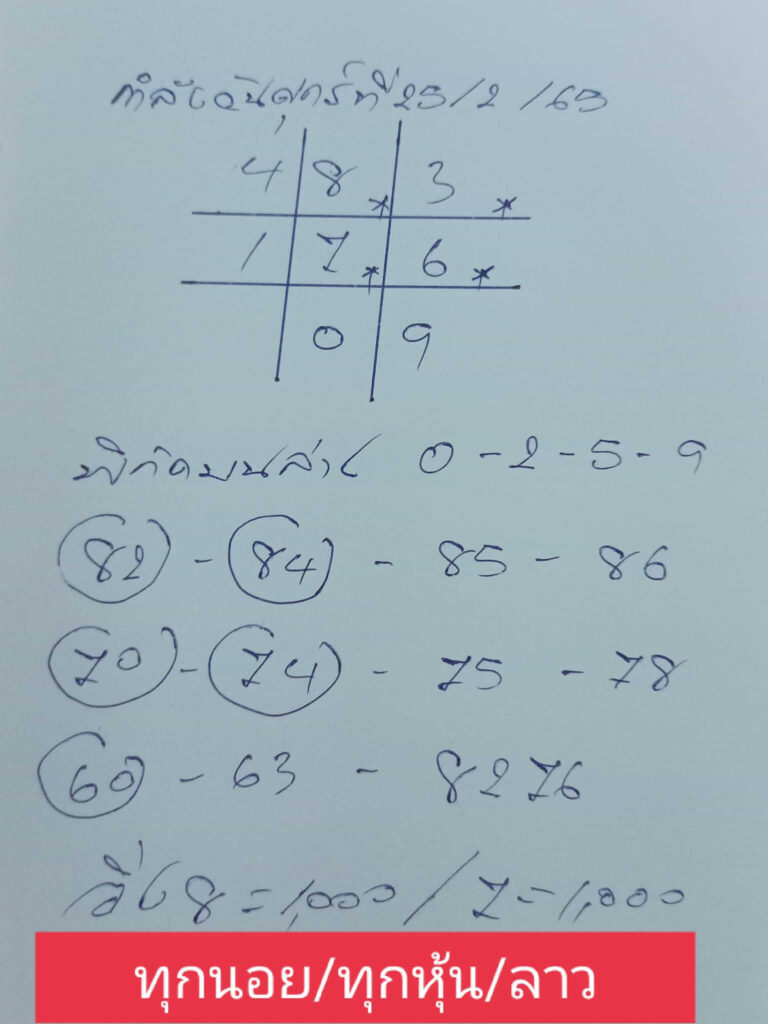 กำลังวันศุกร์ที่ 25/2/65
4 8* 3*
1 7* 6*
0 9
พิกัดบนล่าง 0-2-5-9
82 - 84 - 85 - 86
70 - 74 - 75 - 78
60 - 63 - 8276
วิ่ง 8 = 1,000 / 7 = 1,000
ทุกนอย/ทุกหุ้น/ลาว